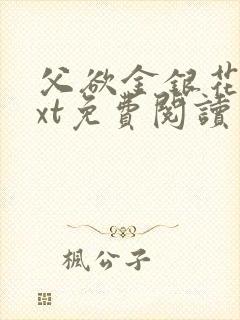 父欲金銀花
xt免費閱讀
楓公子